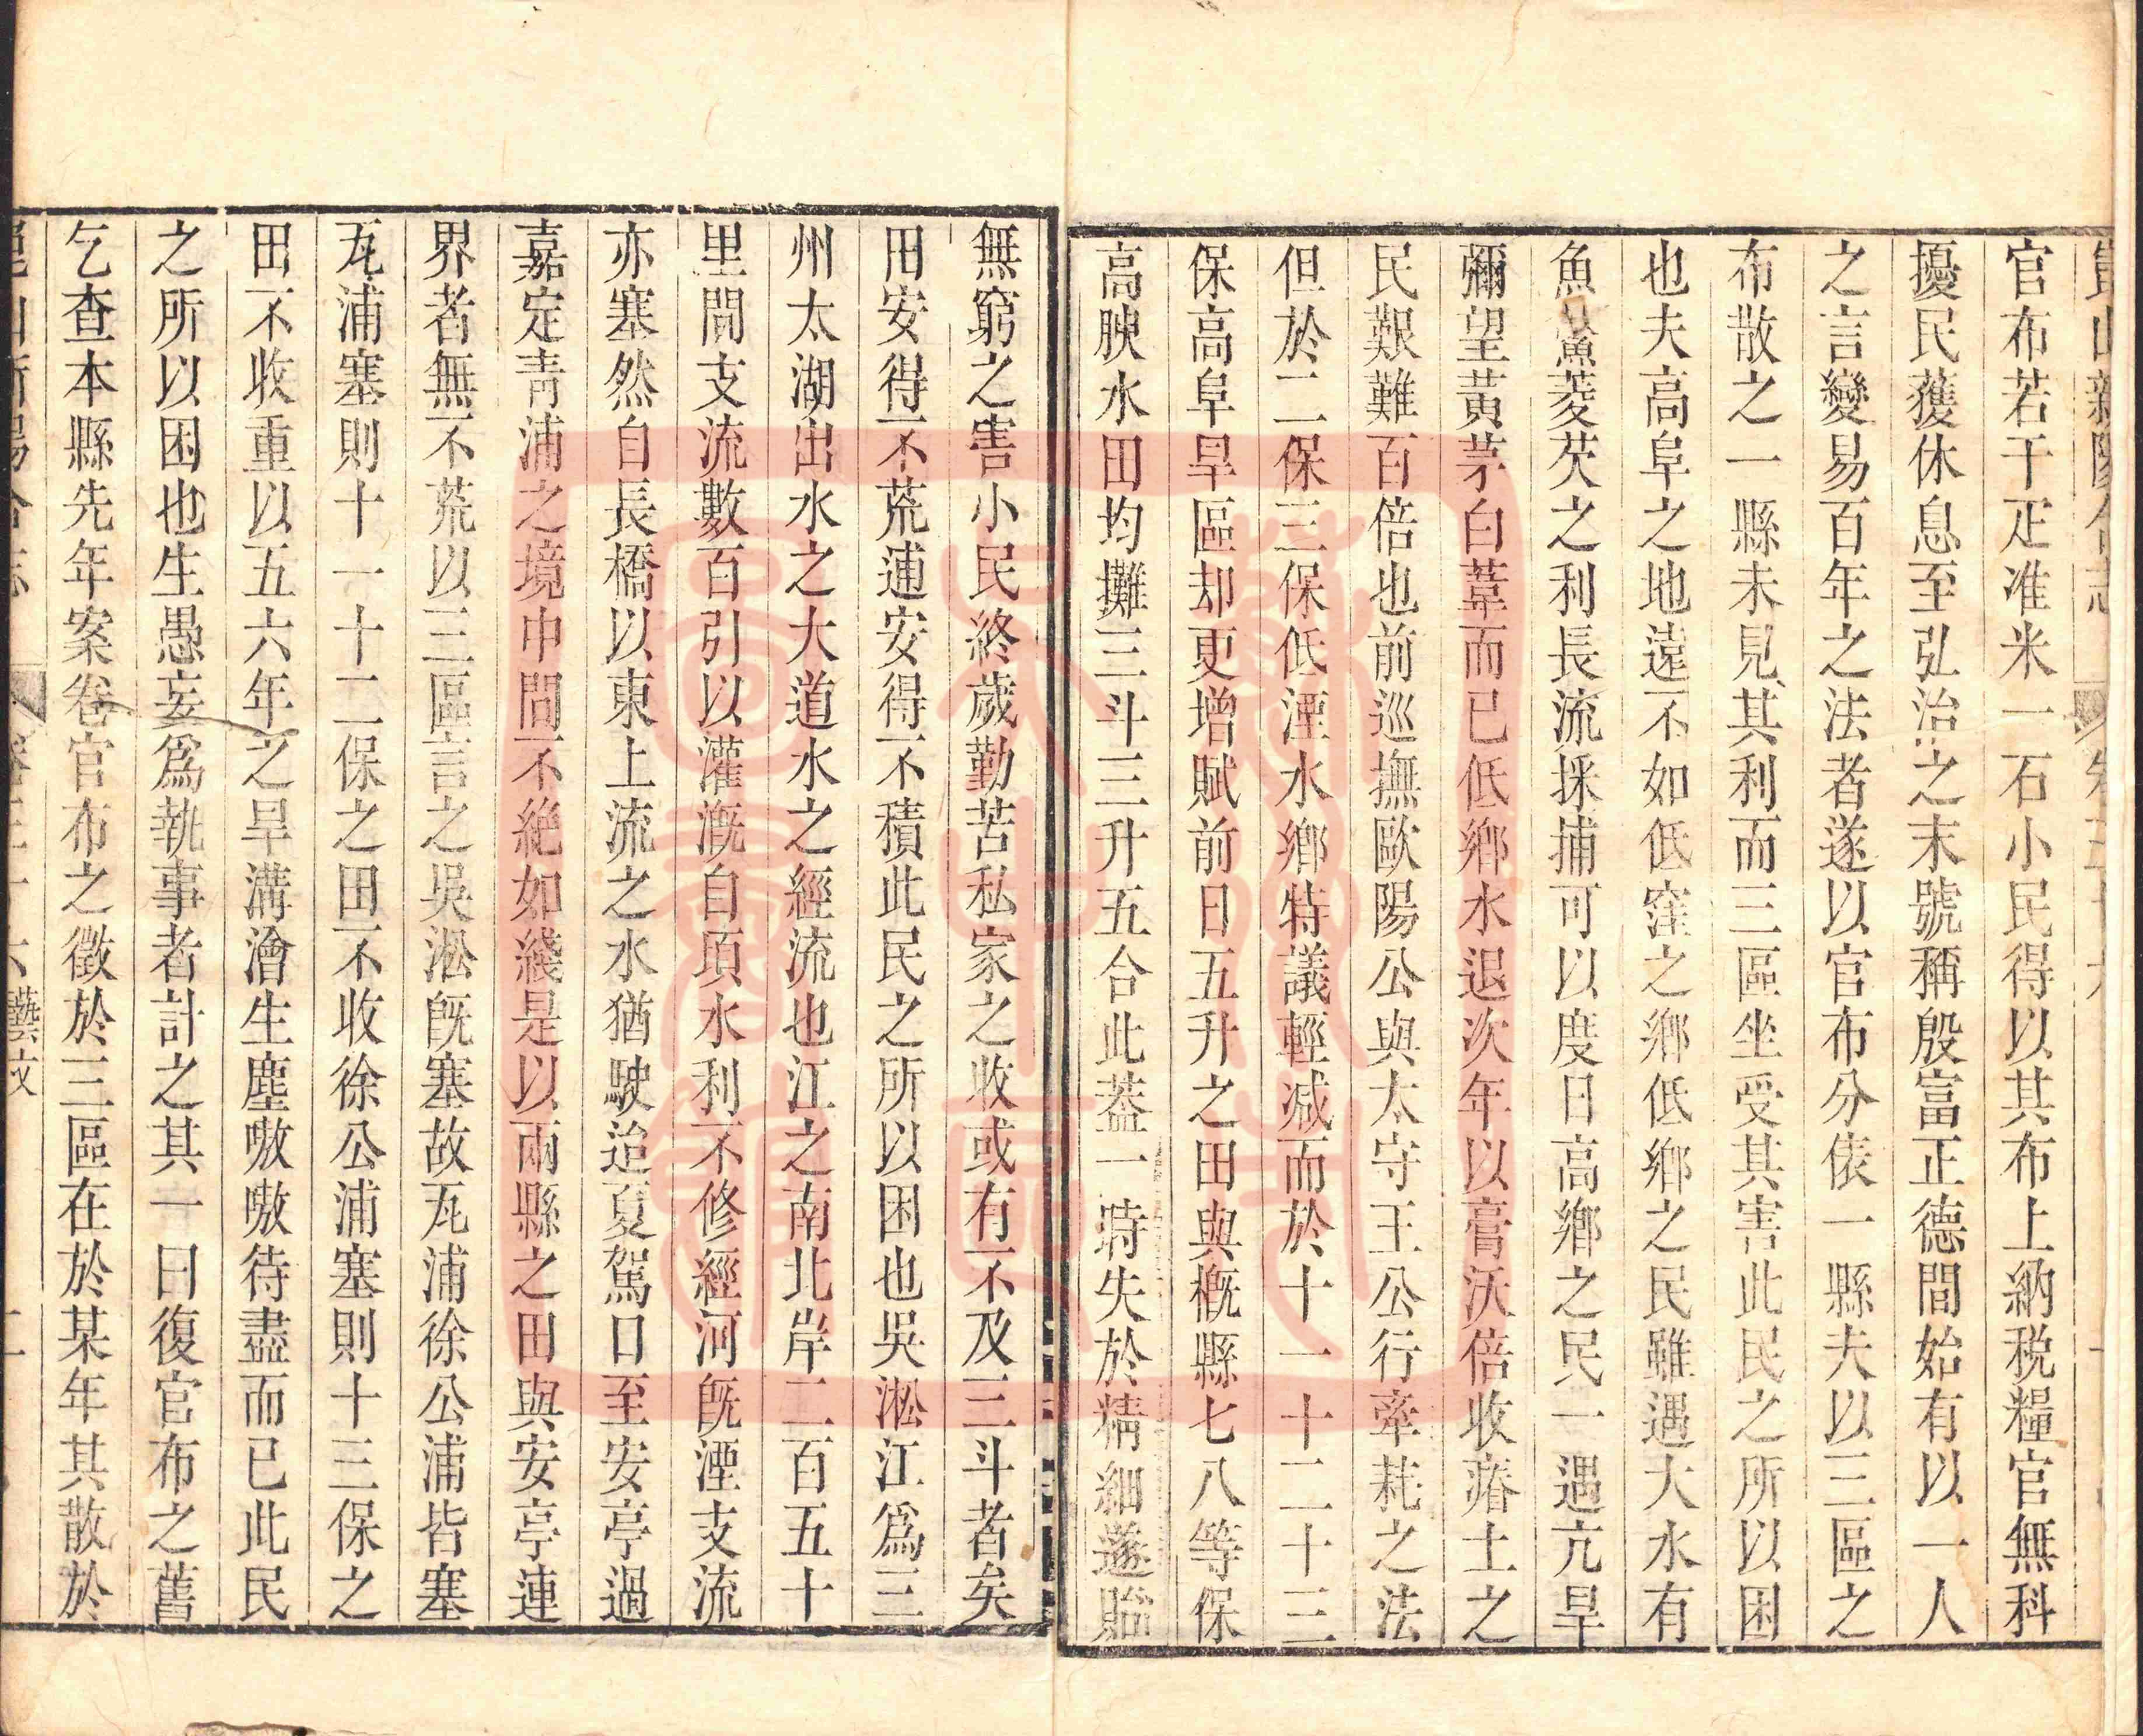 官布若干疋准米一石小民得以其布上納稅糧官無科
擾民獲休息至弘治之末號稱殷富正德間始有以一人
之言變易百年之法者遂以官布分俵一縣夫以三區之
布散之一縣未見其利而三區坐受其害此民之所以困
也夫高阜之地遠不如低窪之鄉低鄉之民雖遇大水有
魚鱉菱芡之利長流採捕可以度日高鄉之民一遇亢旱
彌望黃茅白葦而已低鄉水退次年以膏沃倍收瘠土之
民艱難百倍也前巡撫歐陽公與太守王公行牽耗之法
但於二保三保低湮水鄉特議輕減而於十一十二十三
保高阜旱區却更增賦前日五升之田與槪縣七八等保
高腴水田均攤三斗三升五合此葢一時失於精細遂貽
無窮之害小民終歲勤苦私家之收或有不及三斗者矣
田安得不荒逋安得不積此民之所以困也吳淞江爲三
州太湖出水之大道水之經流也江之南北岸二百五十
里間支流數百引以灌漑自頃水利不修經河旣湮支流
亦塞然自長橋以東上流之水猶駛迨夏駕口至安亭過
嘉定靑浦之境中間不絕如綫是以兩縣之田與安亭連
界者無不荒以三區言之吳淞旣塞故瓦浦徐公浦皆塞
瓦浦塞則十一十二保之田不收徐公浦塞則十三保之
田不收重以五六年之旱溝澮生塵嗷嗷待盡而已此民
之所以困也生愚妄爲執事者計之其一曰復官布之舊
乞查本縣先年案卷官布之徵於三區在於某年其散於